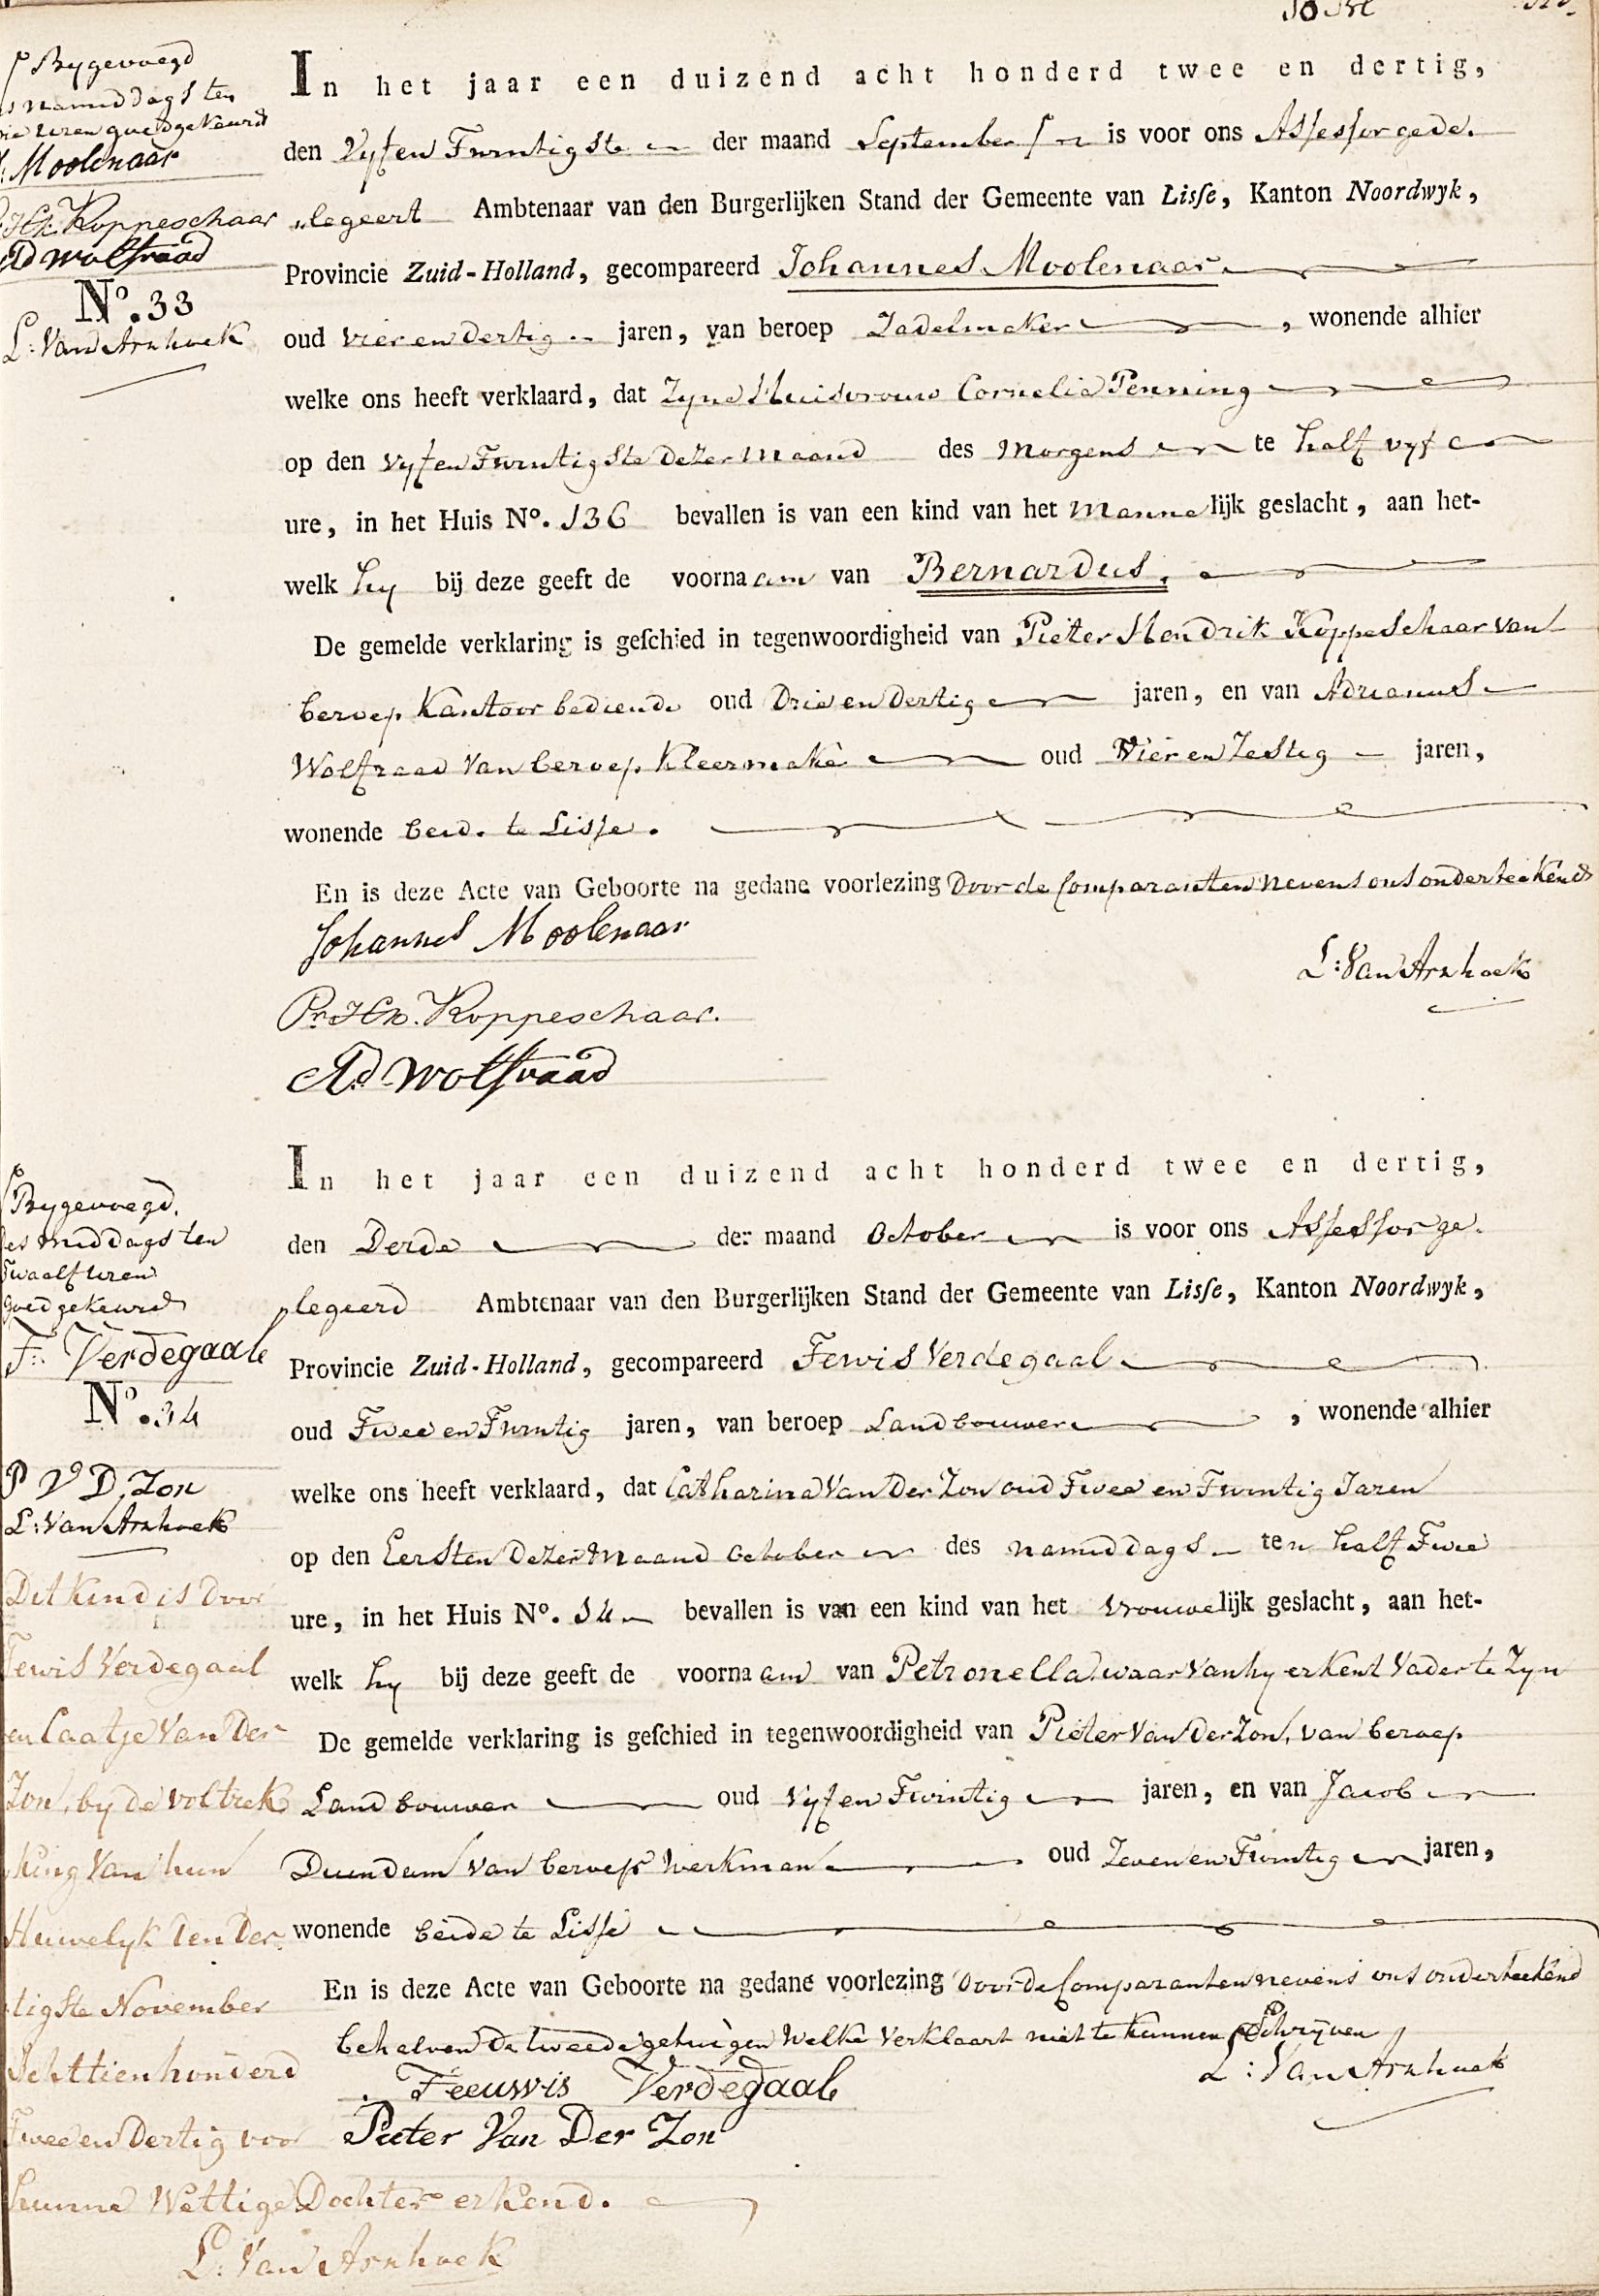 Bygevoegd
namiddags ten
uren goedgekeurd
Moolenaar
Koppeschaar
Ad Wolfraad
No. 33
L: Van Arnhoek
In het jaar een duizend acht honderd twee en dertig,
den Vyf en Twintigste der maand September is voor ons Assessor gede-
legeert Ambtenaar van den Burgerlijken Stand der Gemeente van Lisse, Kanton Noordwyk,
Provincie Zuid-Holland, gecompareerd Johannes Moolenaar
oud vier en dertig jaren, van beroep Zadelmaker, wonende alhier
welke ons heeft verklaard, dat Zyne Huisvrouw Cornelia Penning
op den vyf en Twintigste dezer maand des morgens te half vyf
ure, in het Huis No. 136 bevallen is van een kind van het mannelijk geslacht, aan het-
welk hy bij deze geeft de voornaam van Bernardus.
De gemelde verklaring is geschied in tegenwoordigheid van Pieter Hendrik Koppeschaar van
beroep Kantoor bediende oud Drie en Dertig jaren, en van Adrianus
Wolfraad van beroep Kleermaker oud Vier en Zestig jaren,
wonende beid. te Lisse.
En is deze Acte van Geboorte na gedane voorlezing door de Comparanten nevens ons onderteekend
Johannes Moolenaar
L: Van Arnhoek
Pr. Hk. Koppeschaar.
Ad Wolfraad
Bygevoegd.
des middags ten
Twaalf uren
goedgekeurd
F: Verdegaal
No. 34
P V D Zon
L: Van Arnhoek
In het jaar een duizend acht honderd twee en dertig,
den Derde der maand October is voor ons Assessor ge-
legeerd Ambtenaar van den Burgerlijken Stand der Gemeente van Lisse, Kanton Noordwyk,
Provincie Zuid-Holland, gecompareerd Tewis Verdegaal
oud Twee en Twintig jaren, van beroep Landbouwer, wonende alhier
welke ons heeft verklaard, dat Catharina Van Der Zon oud Twee en Twintig Jaren
op den Eersten Dezer Maand October des namiddags ten half Twee
ure, in het Huis No. 14 bevallen is van een kind van het vrouwelijk geslacht, aan het-
welk hy bij deze geeft de voornaam van Petronella, waar van hy erkent Vader te Zyn
De gemelde verklaring is geschied in tegenwoordigheid van Pieter Van Der Zon, van beroep
Landbouwer oud Vyf en Twintig jaren, en van Jacob
Duindam van beroep Werkman oud Zeven en Twintig jaren,
wonende beide te Lisse
En is deze Acte van Geboorte na gedane voorlezing door de Comparanten nevens ons onderteekend
behalven de tweede getuigen welke verklaart niet te kunnen Schryven
L: Van Arnhoek
Teeuwis Verdegaal
Pieter Van Der Zon
Dit Kind is Door
Tewis Verdegaal
en Caatje Van Der
Zon, by de voltrek
king Van hun
Huwelyk den Der
tigste November
Achttienhonderd
Twee en Dertig voor
hunne Wettige Dochter erkend.
L: Van Arnhoek